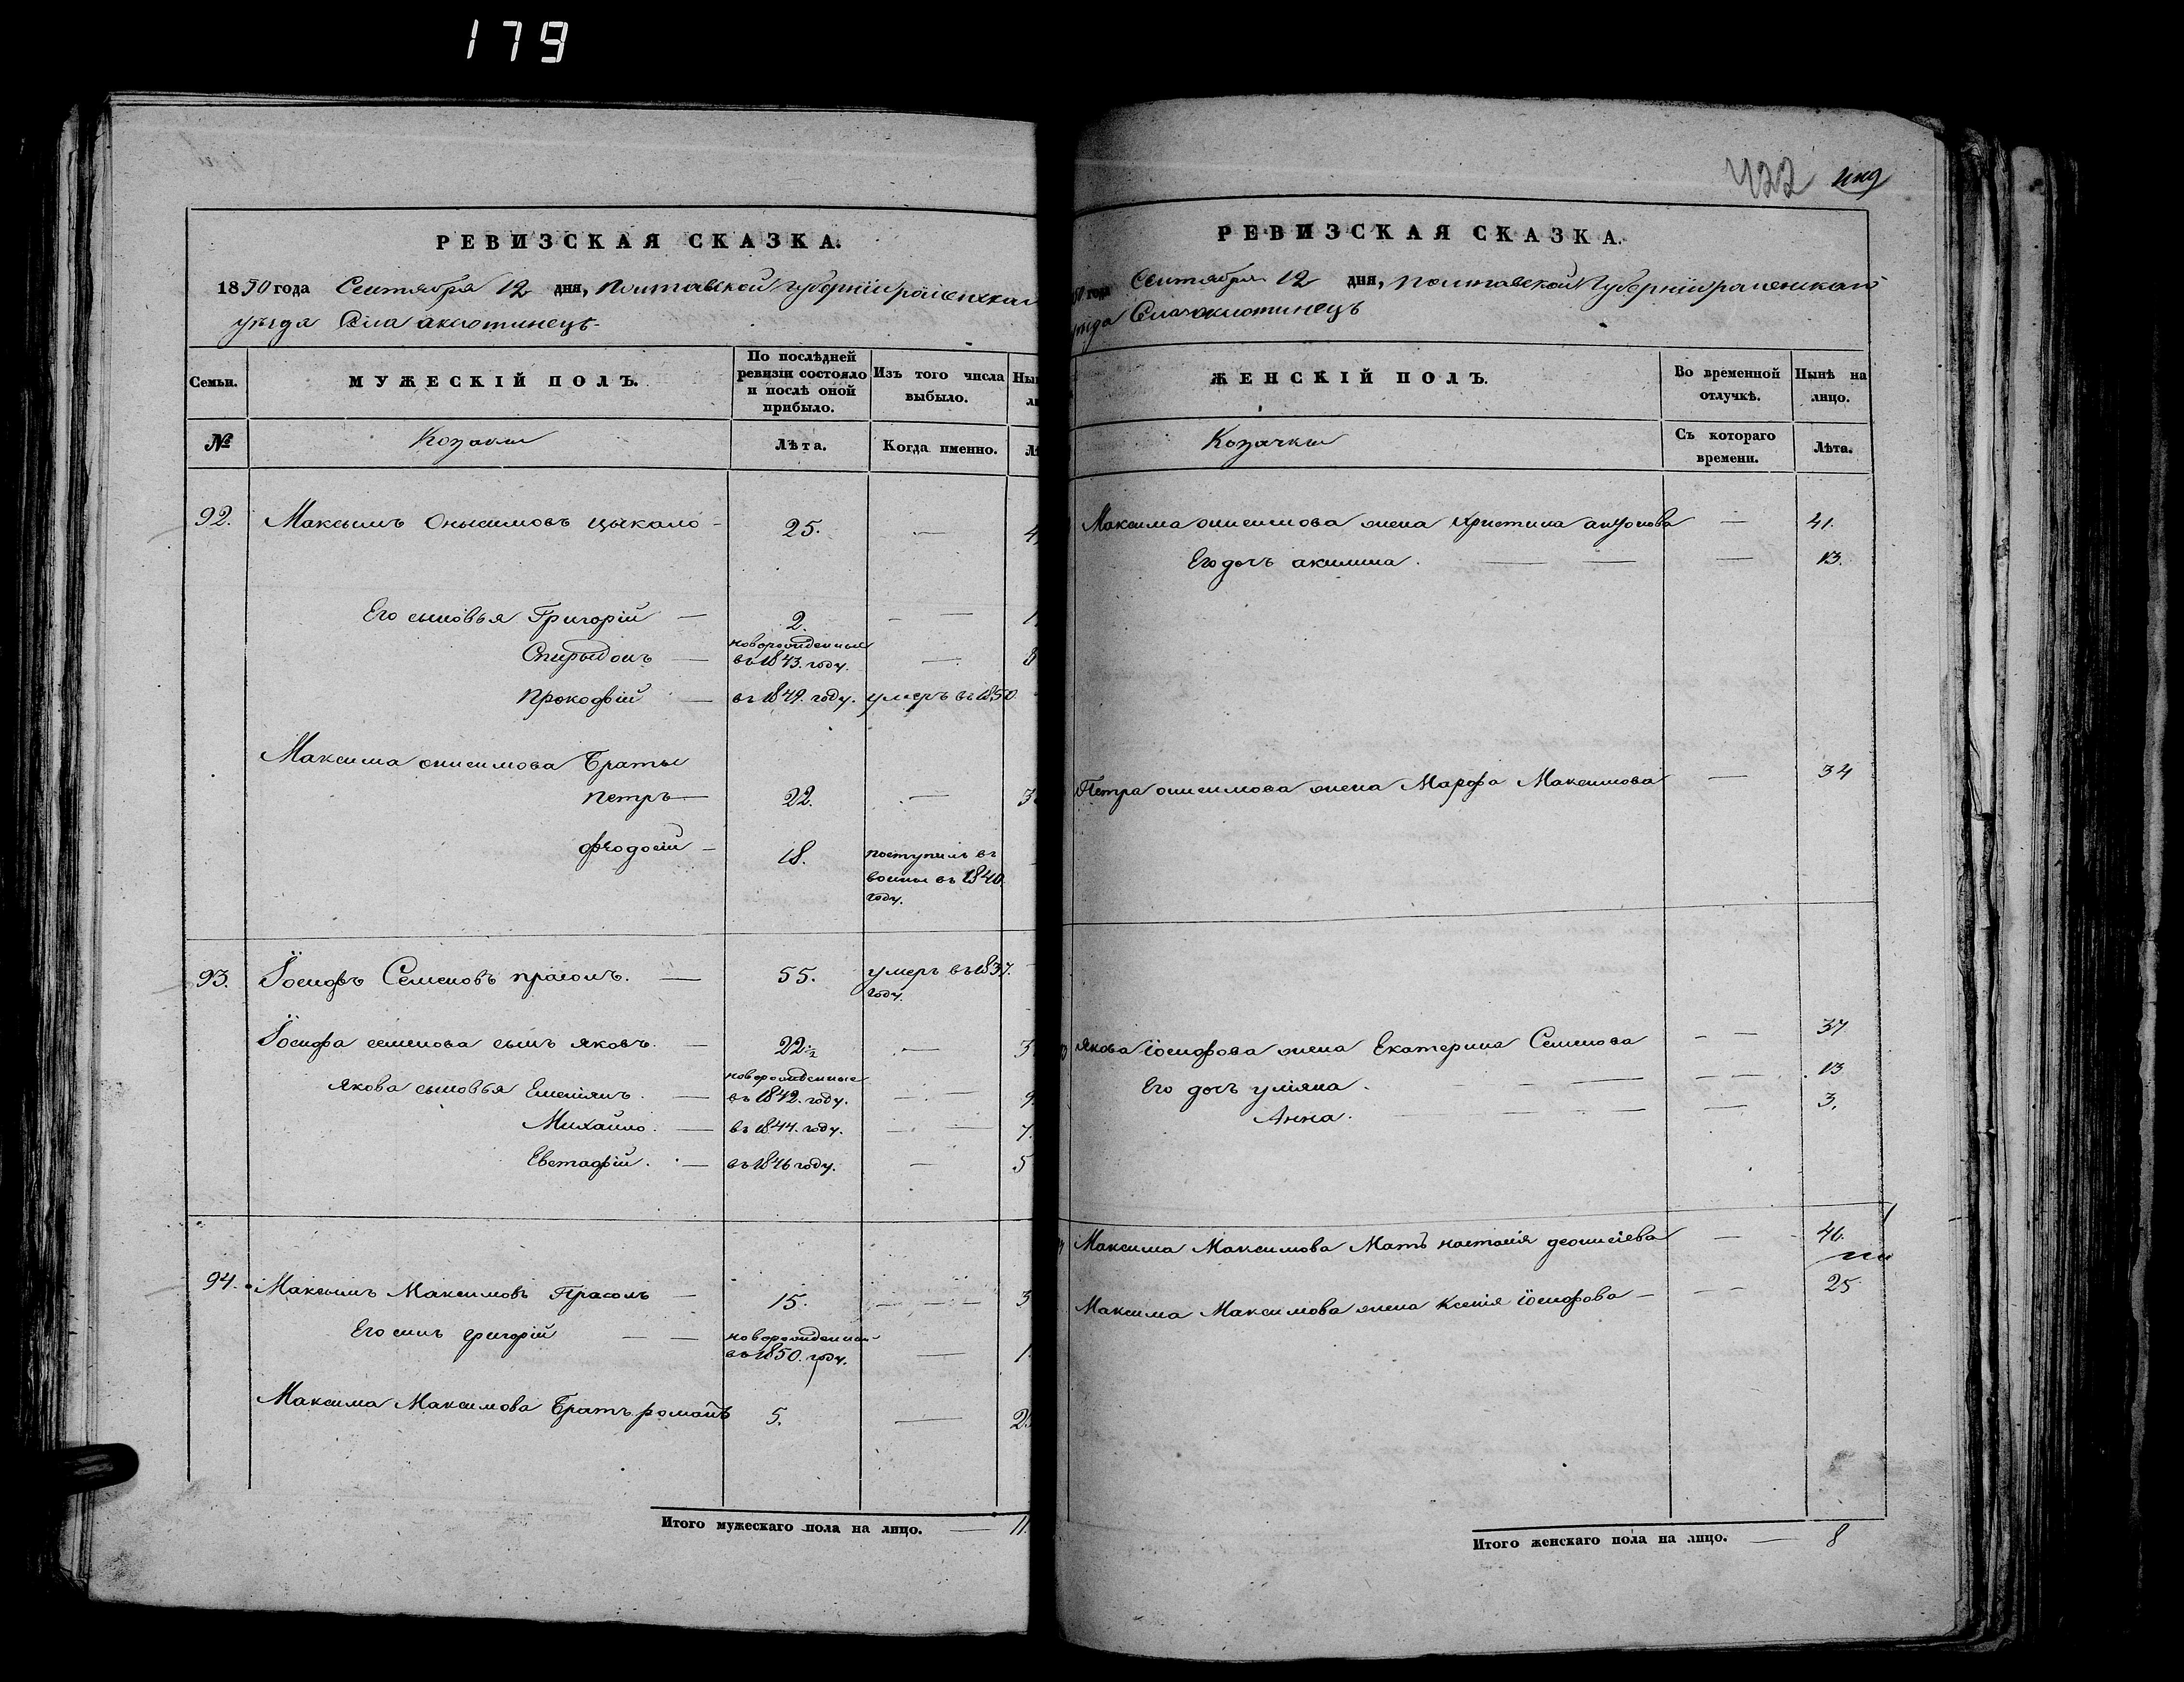 179
РЕВИЗСКАЯ СКАЗКА.
1850 года Сентября 12 дня, Полтавской Губерніи
уѣзда Села аксютинецъ
Семьи. МУЖЕСКІЙ ПОЛЪ. По послѣдней ревизіи состояло и послѣ оной прибыло. Изъ того числа выбыло.
№ Козаки Лѣта. Когда именно.
92. Максымъ Онысимовъ цыкало - 25. —
Его сыновья Григорій — 2. —
Спирыдонъ — новорожденные въ 1843. году. — 8
Прокофій — въ 1849. году. умеръ въ 1850
Максима онисимова Браты
петръ — 22. —
феодосій — 18. поступилъ въ воины въ 1840. году.
93. Іосифъ Семеновъ прасолъ. — 55. умеръ въ 1837. году.
Іосифа семенова сынъ яковъ. — 22½ —
Якова сыновья Емеліянъ. — новорожденные въ 1842. году. — 9
Михайло. — въ 1844. году. — 7.
Евстафій. — въ 1846 году. — 5
94. Максымъ Максимовъ Прасолъ — 15. —
Его синъ григорій — новорожденный въ 1850. году. — 1.
Максима Максимова Братъ романъ 5. —
Итого мужескаго пола на лицо. — 11.
422
РЕВИЗСКАЯ СКАЗКА.
года Сентября 12 дня, Полтавской Губерніи роменскаго
уѣзда Села аксютинецъ
ЖЕНСКІЙ ПОЛЪ. Во временной отлучкѣ. Нынѣ на лицо.
Козачки Съ котораго времени. Лѣта.
Максима онисимова жена христина антонова — 41.
Его дочъ акилина. — 13.
Петра онисимова жена Марфа Максимова — 34
Якова іосифова жена Екатерина Семенова — 37
Его дочъ уліяна. — 13
Анна. — 3.
Максима Максимова Мать настасія деонисіева — 46.
Максима Максимова жена Ксенія іосифова — 25
Итого женскаго пола на лицо. — 8